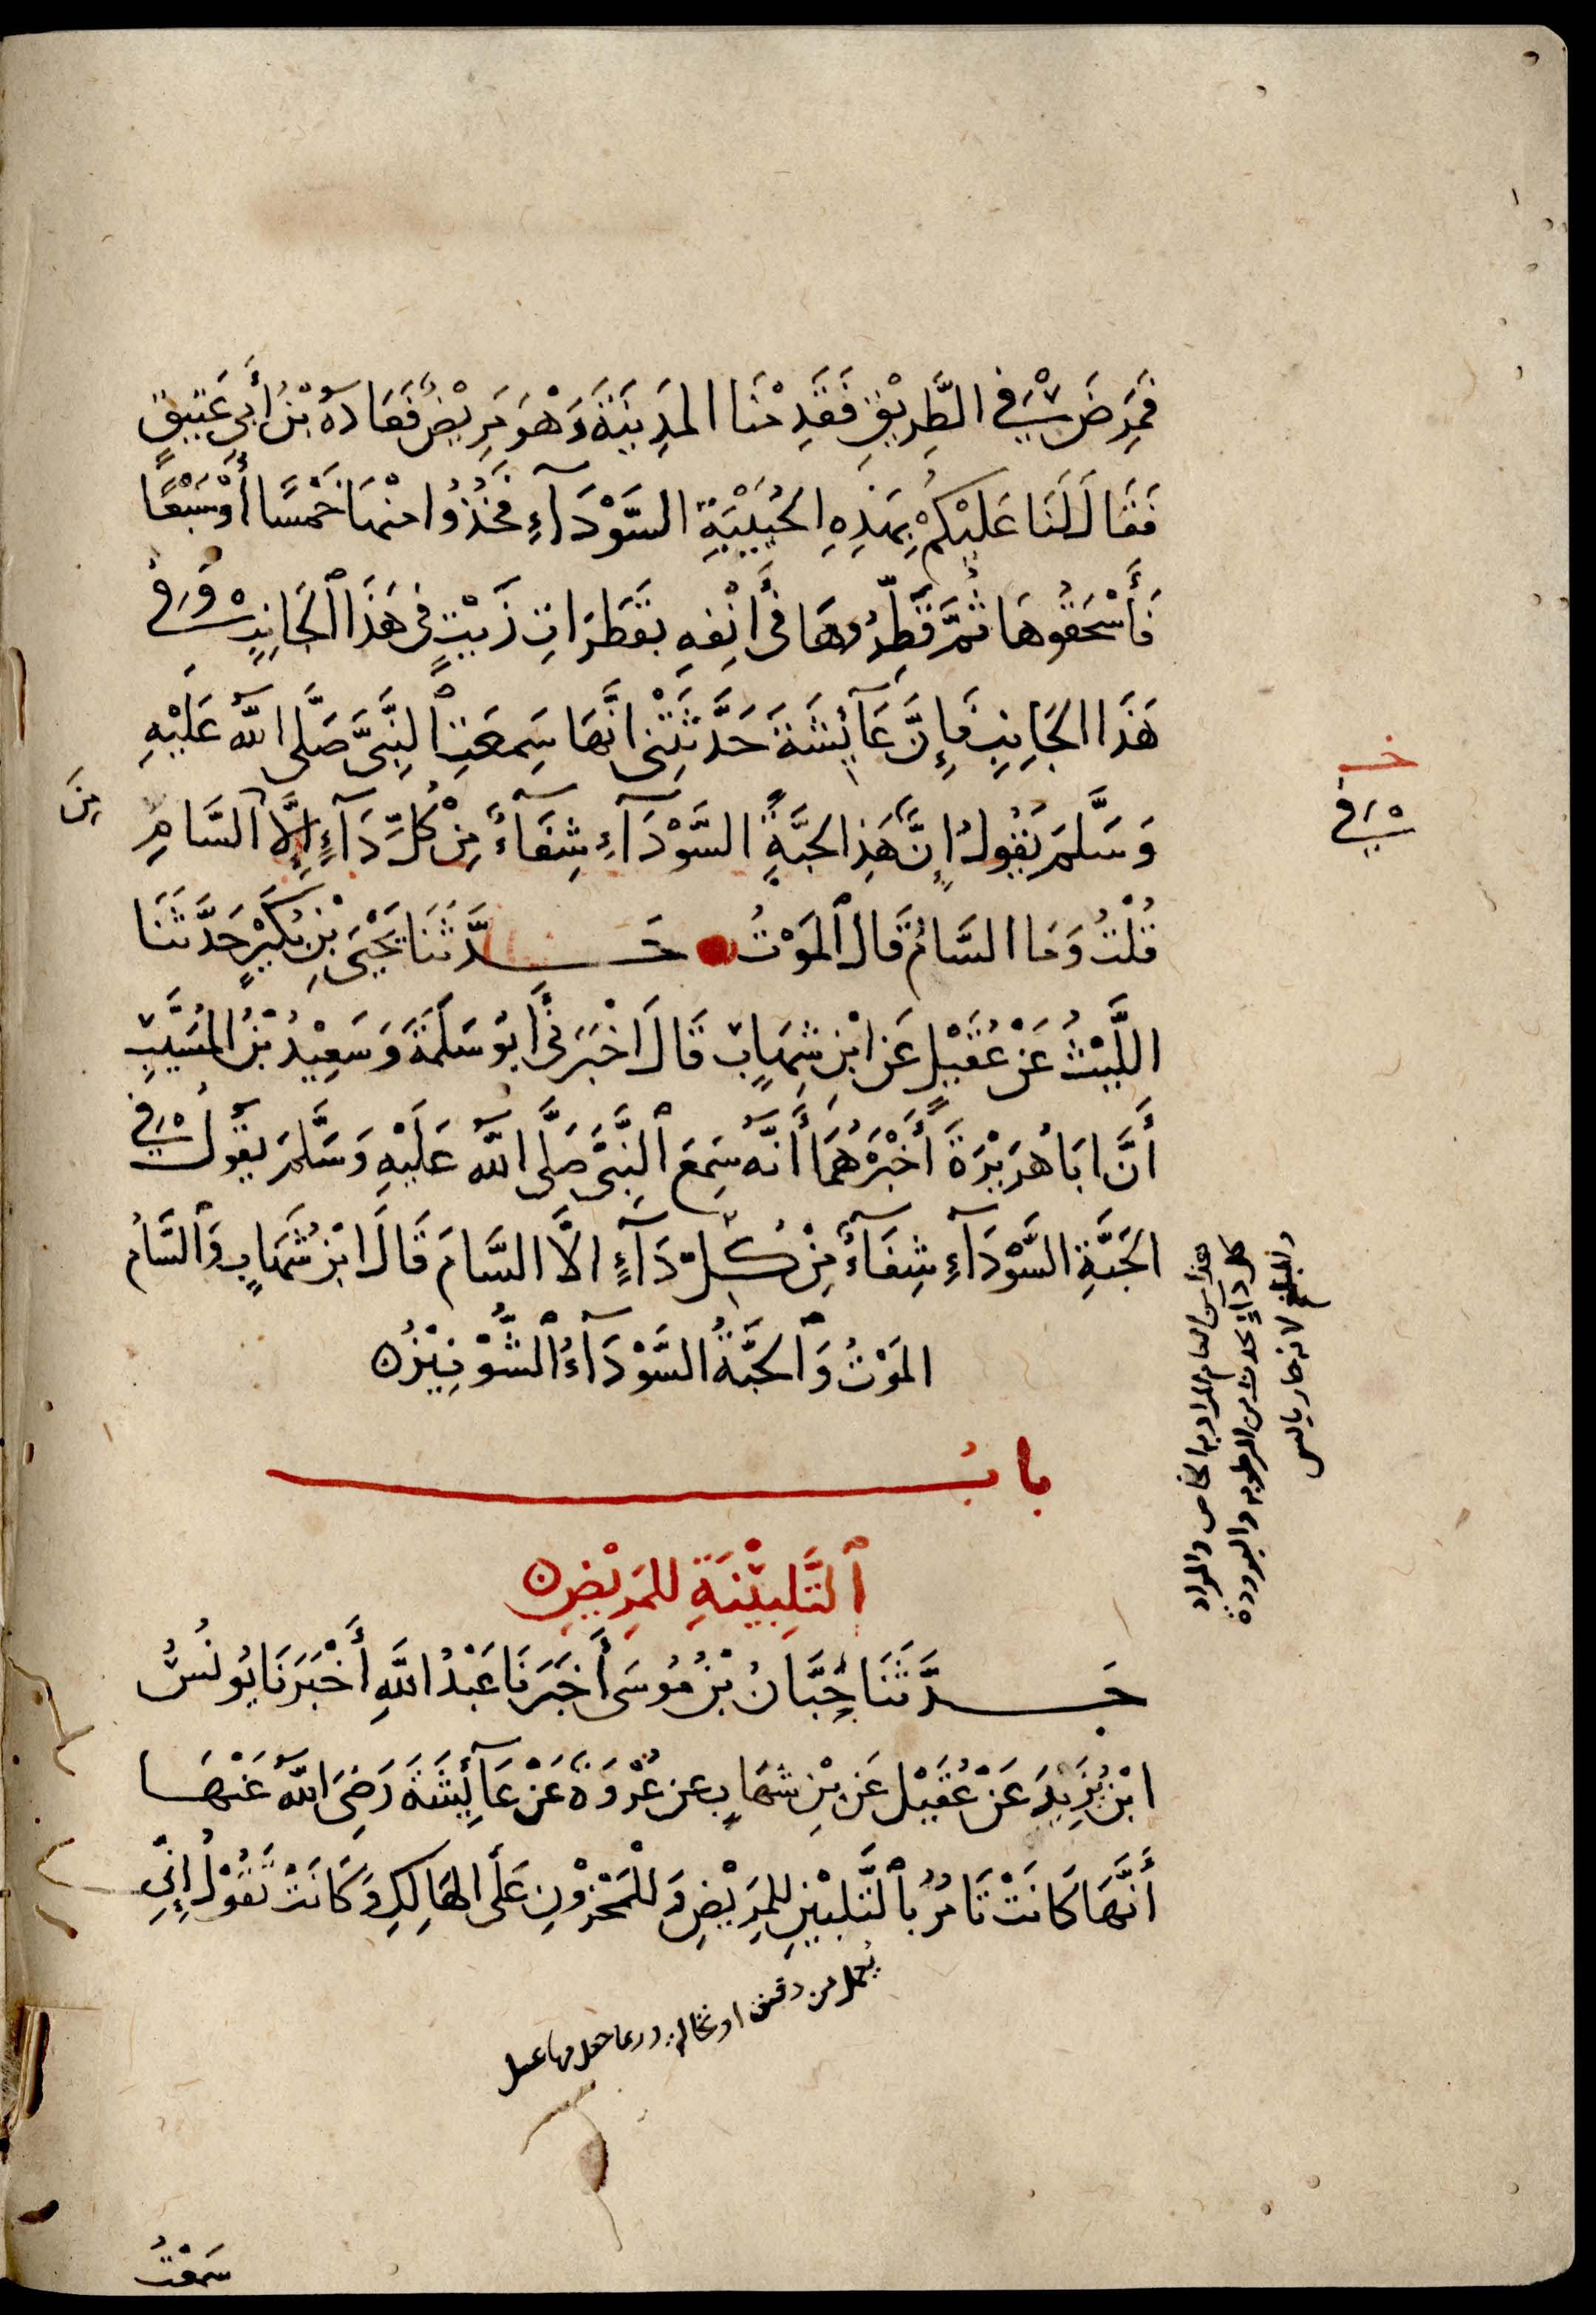 فَمَرِضَ فِي الطَّرِيْقِ فَقَدِمْنَا المَدِيْنَةَ وَهْوَ مَرِيْضٌ فَعَادَهُ بْنُ أَبِي عَتِيقٍ
فَقَالَ لَنَا عَلَيْكُمْ بِهَذِهِ الحُبَيْبَةِ السَّوْدَآءِ فَخُذُوا مِنْهَا خَمْسًا أَوْ سَبْعًا
فَأَسْحَقُوهَا ثُمَّ قَطِّرُوهَا فِي أَنْفِهِ بِقَطَرَاتِ زَيْتٍ فِي هَذَا الْجَانِبِ وَفِي
هَذَا الجَانِبِ فَإِنَّ عَآئِشَةَ حَدَّثَتْنِي انَّهَا سَمِعَتِ النَّبِيَّ صَلَّى اللَّهُ عَلَيْهِ
وَسَلَّمَ يَقُولُ إِنَّ هَذِ الحَبَّةَ السَّوْدَآءِ شِفَآءٌ مِنْ كُلِّ دَآءٍ إِلَّا السَّامِ
مِنَ
خـ
فِي
قُلْتُ وَمَا السَّامُ قَالَ الْمَوْتُ حَـدَّثَنَا يَحْيَى بْنِ بُكَيْرٍ حَدَّثَنَا
اللَّيْثُ عَنْ عُقَيْلٍ عَنِ ابْنِ شِهَابٍ قَالَ اخْبَرَنِي أَبُو سَلَمَةَ وَسَعِيْدُ بْنُ المُسَيَّبِ
أَنَّ ابَا هُرَيْرَةَ أَخْبَرَهُمَا أَنَّهُ سَمِعَ النَّبِيَّ صَلَّى اللَّهُ عَلَيْهِ وَسَلَّمَ يَقُولُ فِي
الحَبَّةِ السَّوْدَآءِ شِفَآءٌ مِنْ كُلِّ دَآءٍ الَّا السَّامَ قَالَ ابْنُ شِهَابٍ وَالسَّامُ
المَوْتُ وَالْحَبَّةُ السَّوْدَآءُ الشُّوْنِيْزُ
هذا من العام المراد به الخاص والمراد
كل داءٍ يحدث من الرطوبه والبرودة
والبلغم لانه حار يابس
بابُ
التَّلْبِيْنَةِ لِلمَرِيْضِ
حَـدَّثَنَا حِبَّانُ بْنُ مُوسَى أَخْبَرَنَا عَبْدُ اللَّهِ أَخْبَرَنَا يُونُسُ
ابْنُ يَزِيْدَ عَنْ عُقَيْلٍ عَنِ بْنِ شِهَابٍ عَنْ عُرْوَةَ عَنْ عَآئِشَةَ رَضِيَ اللَّهُ عَنْهَا
أَنَّهَا كَانَتْ تَامُرُ بِالْتَّلْبِيْنِ لِلمَرِيْضِ وَلِلْمَحْزُوْنِ عَلَى الهَالِكِ وَكَانَتْ تَقُوْلُ إِنِّي
يُعمل من دقيق او نخاله وربما جعل فيها عسل
سَمِعْتُ